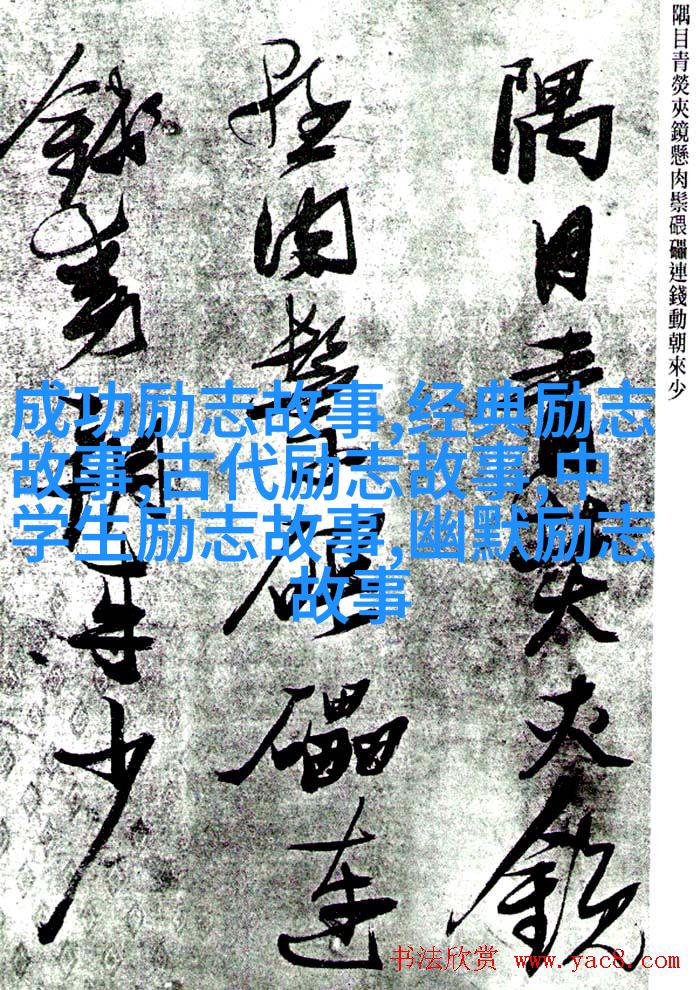 隅目青熒夾鏡懸肉鬃碨礧連錢動朝來少
隅目青熒夾鏡
懸肉鬃碨礧連
錢動朝來少
成功励志故事,经典励志
故事,古代励志故事,中
学生励志故事,幽默励志
故事
书法欣赏 www.yac8.com